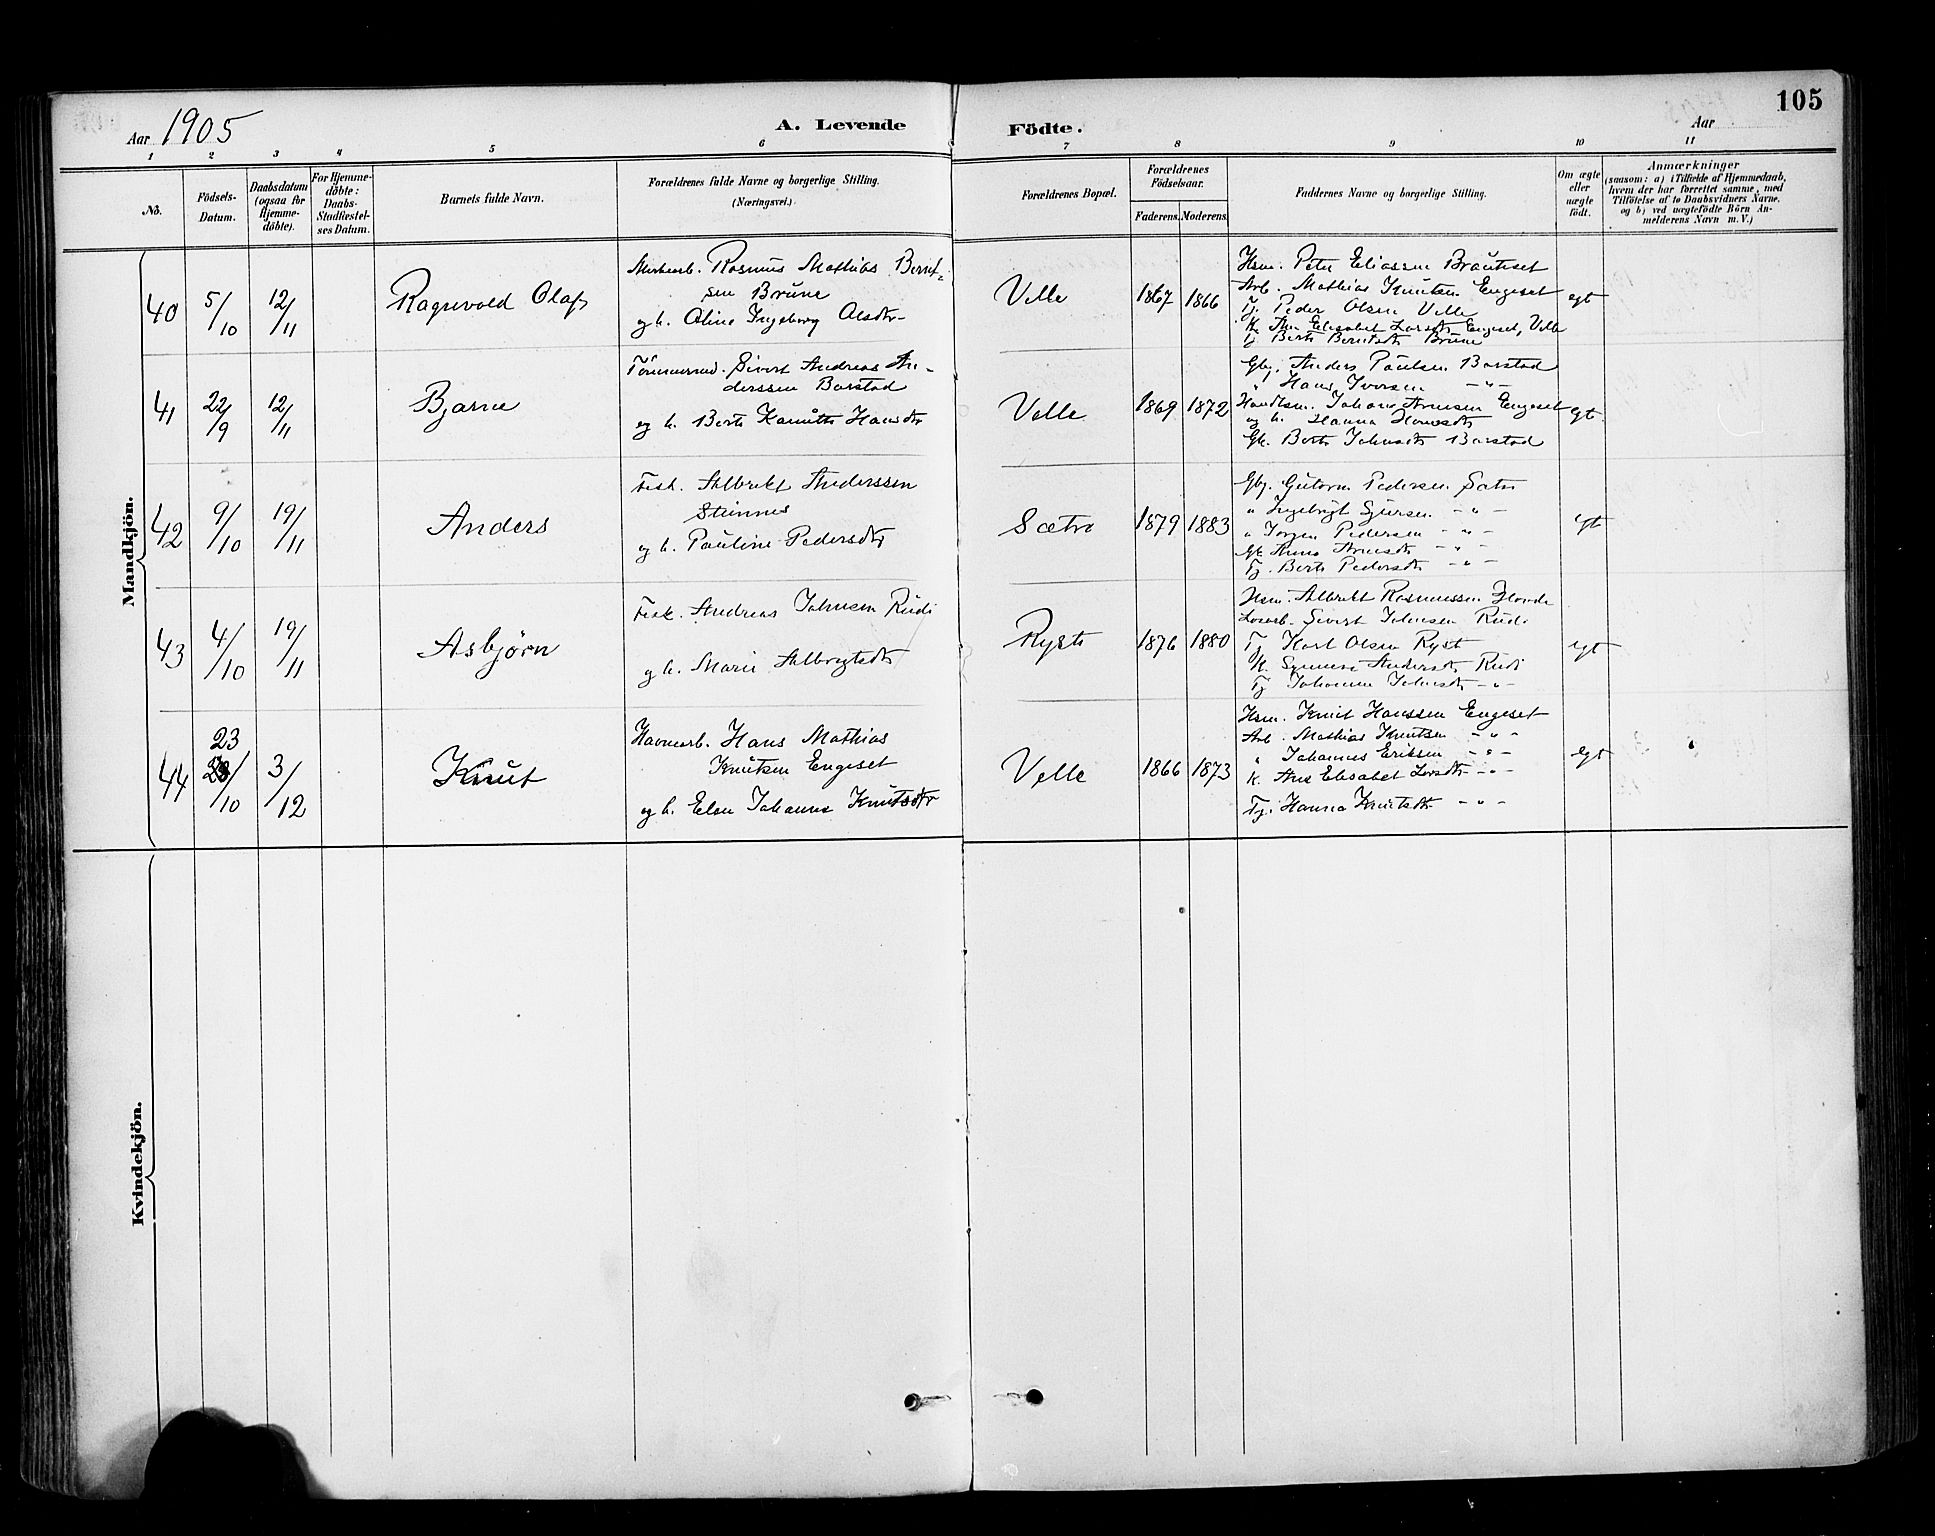 105
Aar 1905
A. Levende Födte.
Aar
1 2 3 4 5 6 7 8 9 10 11
No.
Födsels-Datum.
Daabsdatum (ogsaa for Hjemme-döbte).
For Hjemme-döbte: Daabs-Stadfæstel-ses Datum.
Barnets fulde Navn.
Forældrenes fulde Navne og borgerlige Stilling. (Næringsvei.)
Forældrenes Bopæl.
Forældrenes Födselsaar.
Faderens. Moderens.
Faddernes Navne og borgerlige Stilling.
Om ægte eller uægte födt.
Anmærkninger
(saasom: a) i Tilfælde af Hjemmedaab, hvem der har forrettet samme, med Tilföielse af to Daabsvidners Navne. og b) ved uægtefödte Börn An-melderens Navn m. V.)
Mandkjön.
40 5/10 12/11 Ragnvald Olaf
Rasmus Mathias Bernt-
sen Brune
og h. Oline Ingeborg Olsdtr
Velle 1867 1866
Hsm. Peter Eliassen Brauteset
Arb. Mathias Knutsen Engeset
Tj. Peder Olsen Velle
K. Ane Elisabet Larsdtr Engeset, Velle
Tj Berte Berntsdtr Brune
egt
41 22/9 12/11 Bjarne
Tömmermd. Sivert Andreas An-
derssen Barstad
og h. Berte Hansdtr
Velle 1869 1872
Gbr. Anders Paulsen Barstad
" Hans Iversen - " -
Handlsm. Johan Arnesen Engeset
og h. Hanna Hansdtr
Gk. Berte Johnsdtr Barstad
egt.
42 9/10 19/11 Anders
Fisk. Albrekt Anderssen
Stennes
og h. Pauline Pedersdtr
Sætre 1879 1883
Gbr. Guttorm Pedersen Sætre
" Ingebrigt Sjursen - " -
" Jørgen Pedersen - " -
Gk Anne Arnesdtr - " -
Tj. Berte Pedersdtr - " -
egt
43 4/10 19/11 Asbjørn
Fisk. Andreas Johnsen Rudi
og h. Marie Albrigtsdtr
Ryste 1876 1880
Hsm. Albrekt Rasmussen
Løsarb. Sivert Johnsen Rudi
Tj Karl Olsen Ryst
K. Andersdtr Rudi
Tj Johanne Johnsdtr - " -
egt
44 23/10 3/12 Knut
Havnearb. Hans Mathias
Knutsen Engeset
og h. Elen Johanne Knutsdtr
Velle 1866 1873
Hsm. Knut Hanssen Engeset
Arb. Mathias Knutsen - " -
" Johannes Eriksen - " -
K. Ane Elisabet Larsdtr - " -
Tj. Hanna Knutsdtr. - " -
egt
Kvindekjön.